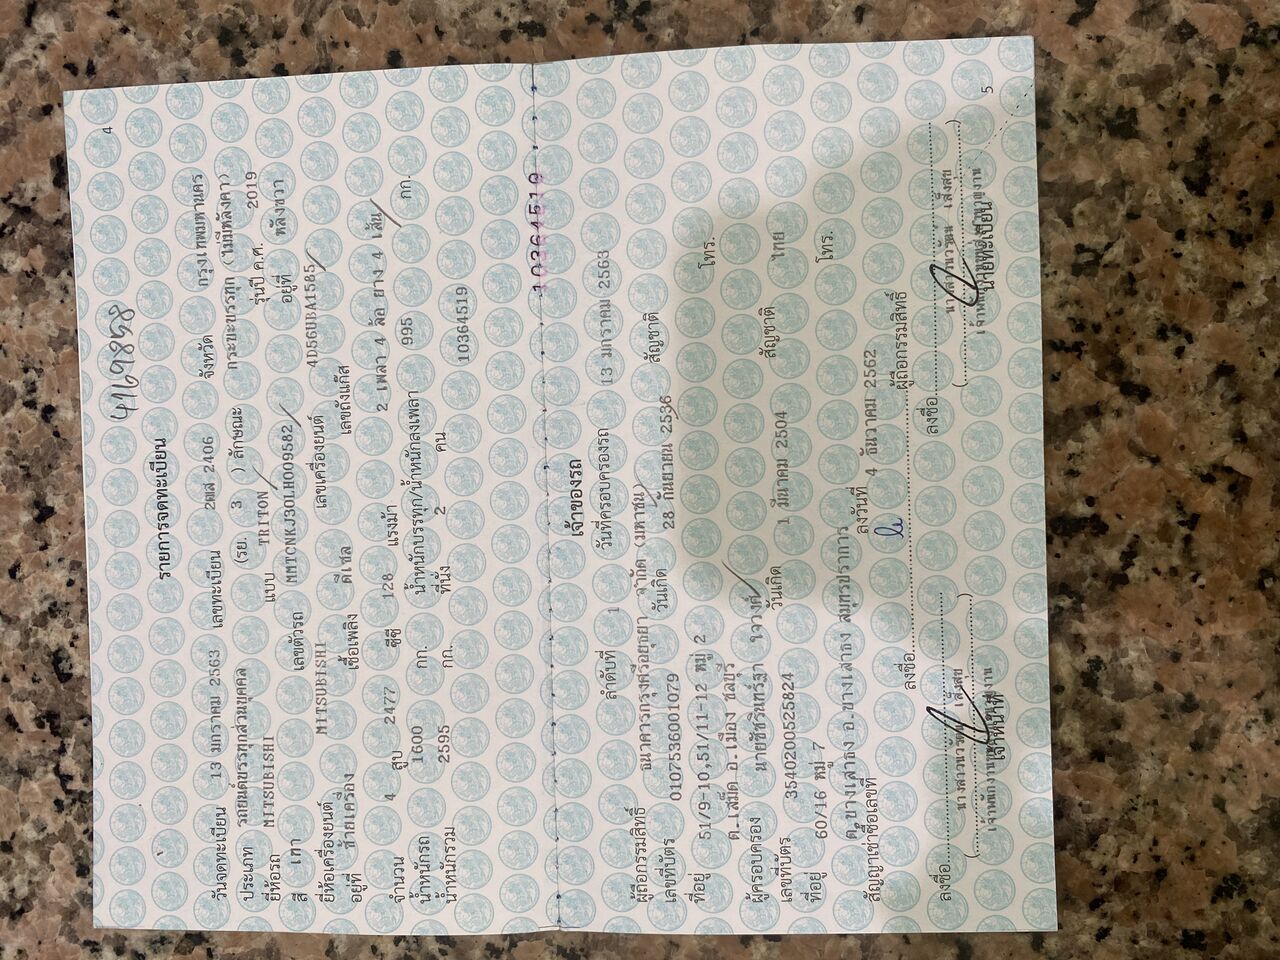 4
41698958
รายการจดทะเบียน
วันจดทะเบียน 13 มกราคม 2563 เลขทะเบียน 2ฒส 2406 จังหวัด กรุงเทพมหานคร
ประเภท รถยนต์บรรทุกส่วนบุคคล (รย. 3 ) ลักษณะ กระบะบรรทุก (ไม่มีหลังคา)
ยี่ห้อรถ MITSUBISHI แบบ TRITON รุ่นปี ค.ศ. 2019
สี เทา เลขตัวรถ MMTCNKJ30LH009582 อยู่ที่ หลังขวา
ยี่ห้อเครื่องยนต์ MITSUBISHI เลขเครื่องยนต์ 4D56UBA1585
อยู่ที่ ซ้ายเครื่อง เชื้อเพลิง ดีเซล เลขถังแก๊ส
จำนวน 4 สูบ 2477 ซีซี 128 แรงม้า 2 เพลา 4 ล้อ ยาง 4 เส้น
น้ำหนักรถ 1600 กก. น้ำหนักบรรทุก/น้ำหนักลงเพลา 995 กก.
น้ำหนักรวม 2595 กก. ที่นั่ง 2 คน 10364519
10364519
เจ้าของรถ
ลำดับที่ 1 วันที่ครอบครองรถ 13 มกราคม 2563
ผู้ถือกรรมสิทธิ์ ธนาคารกรุงศรีอยุธยา จำกัด (มหาชน)
เลขที่บัตร 0107536001079 วันเกิด 28 กันยายน 2536 สัญชาติ
ที่อยู่ 51/9-10,51/11-12 หมู่ 2 โทร.
ต.เสม็ด อ.เมือง ชลบุรี
ผู้ครอบครอง นายชัชรินทร์ฐา
เลขที่บัตร 3540200525824 วันเกิด 1 มีนาคม 2504 สัญชาติ ไทย
ที่อยู่ 60/16 หมู่ 7 โทร.
ต.บางเสาธง อ.บางเสาธง สมุทรปราการ
สัญญาเช่าซื้อเลขที่ ลงวันที่ 4 ธันวาคม 2562
ลงชื่อ ผู้ถือกรรมสิทธิ์
ลงชื่อ ลงชื่อ
เจ้าหน้าที่ นายทะเบียน
5